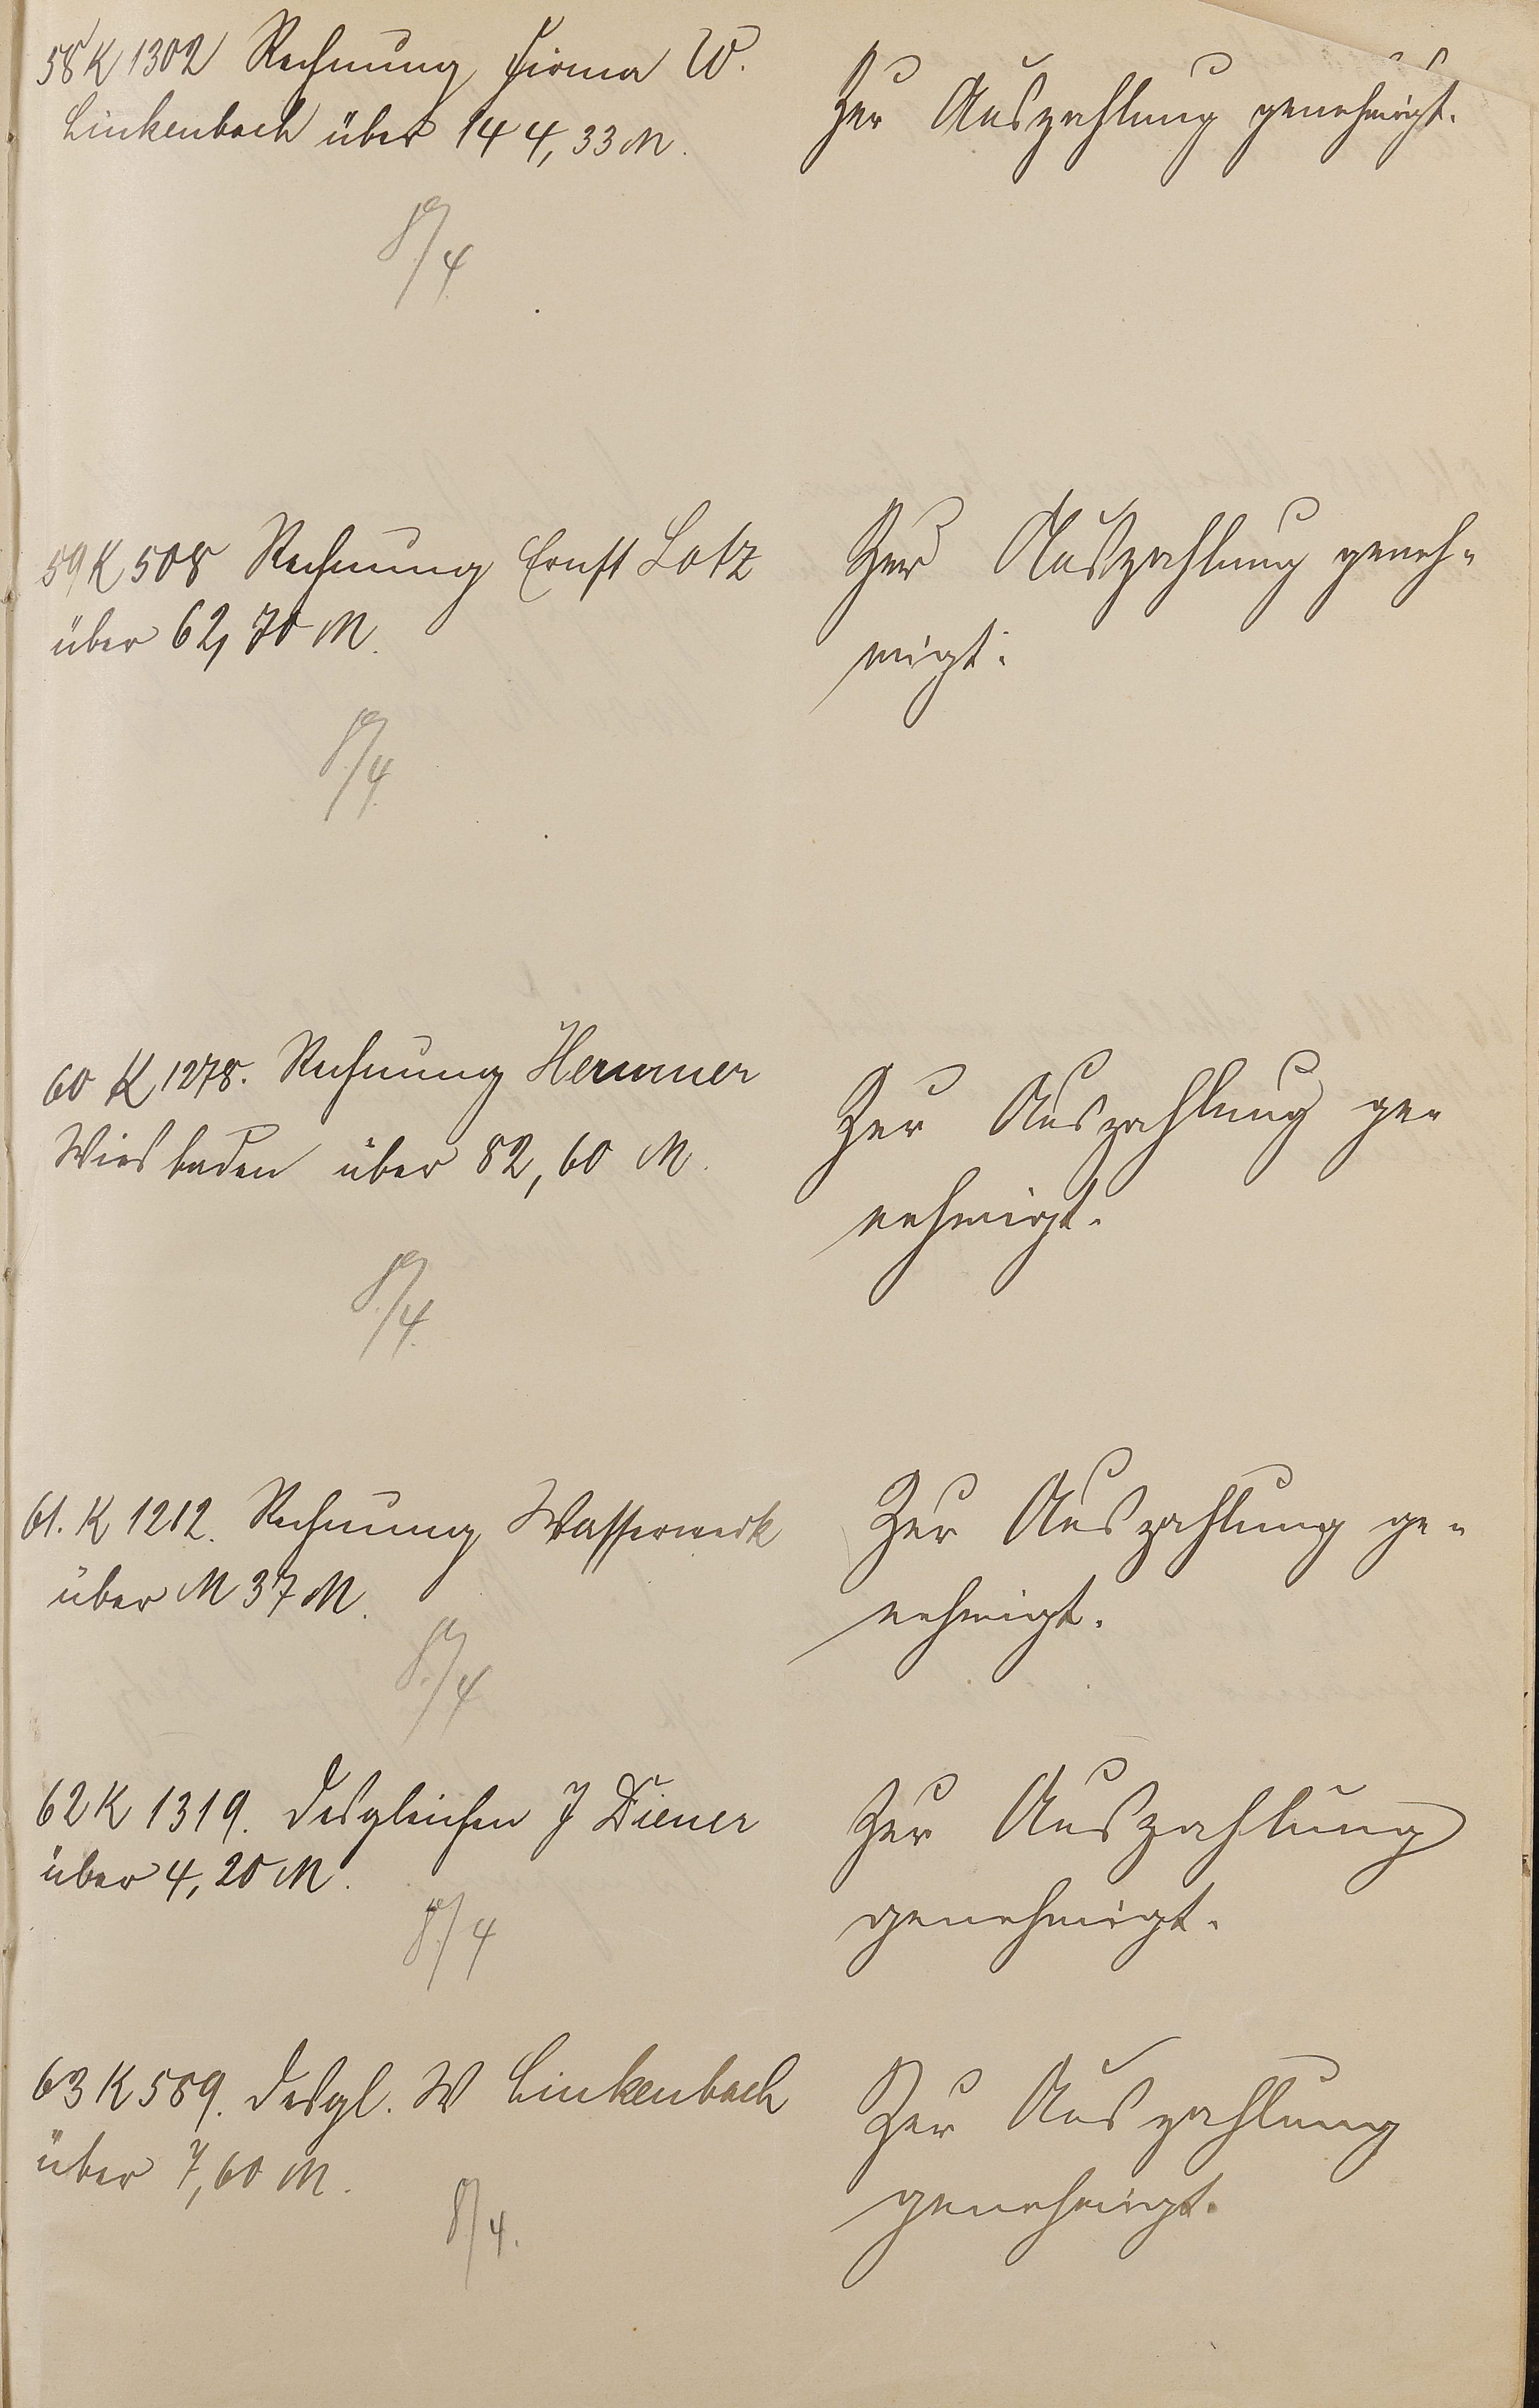 58 K 1302 Rechnung Firma W.
Linkenbach über 144,33 M.
Zur Auszahlung genehmigt.
8/4
59 K 508 Rechnung Ernst Lotz
über 62,70 M.
Zur Auszahlung geneh-
migt.
8/4
60 K 1278. Rechnung
Wiesbaden über 82,60 M.
Zur Auszahlung ge-
nehmigt.
8/4.
61. K 1212. Rechnung Wasserwerk
über M 37 M.
Zur Auszahlung ge-
nehmigt.
8./4
62 K 1319. Desgleichen J Diener
über 4,20 M.
Zur Auszahlung
genehmigt.
8/4
63 K 589. Desgl. W Linkenbach
über 7,60 M.
Zur Auszahlung
genehmigt.
8/4.